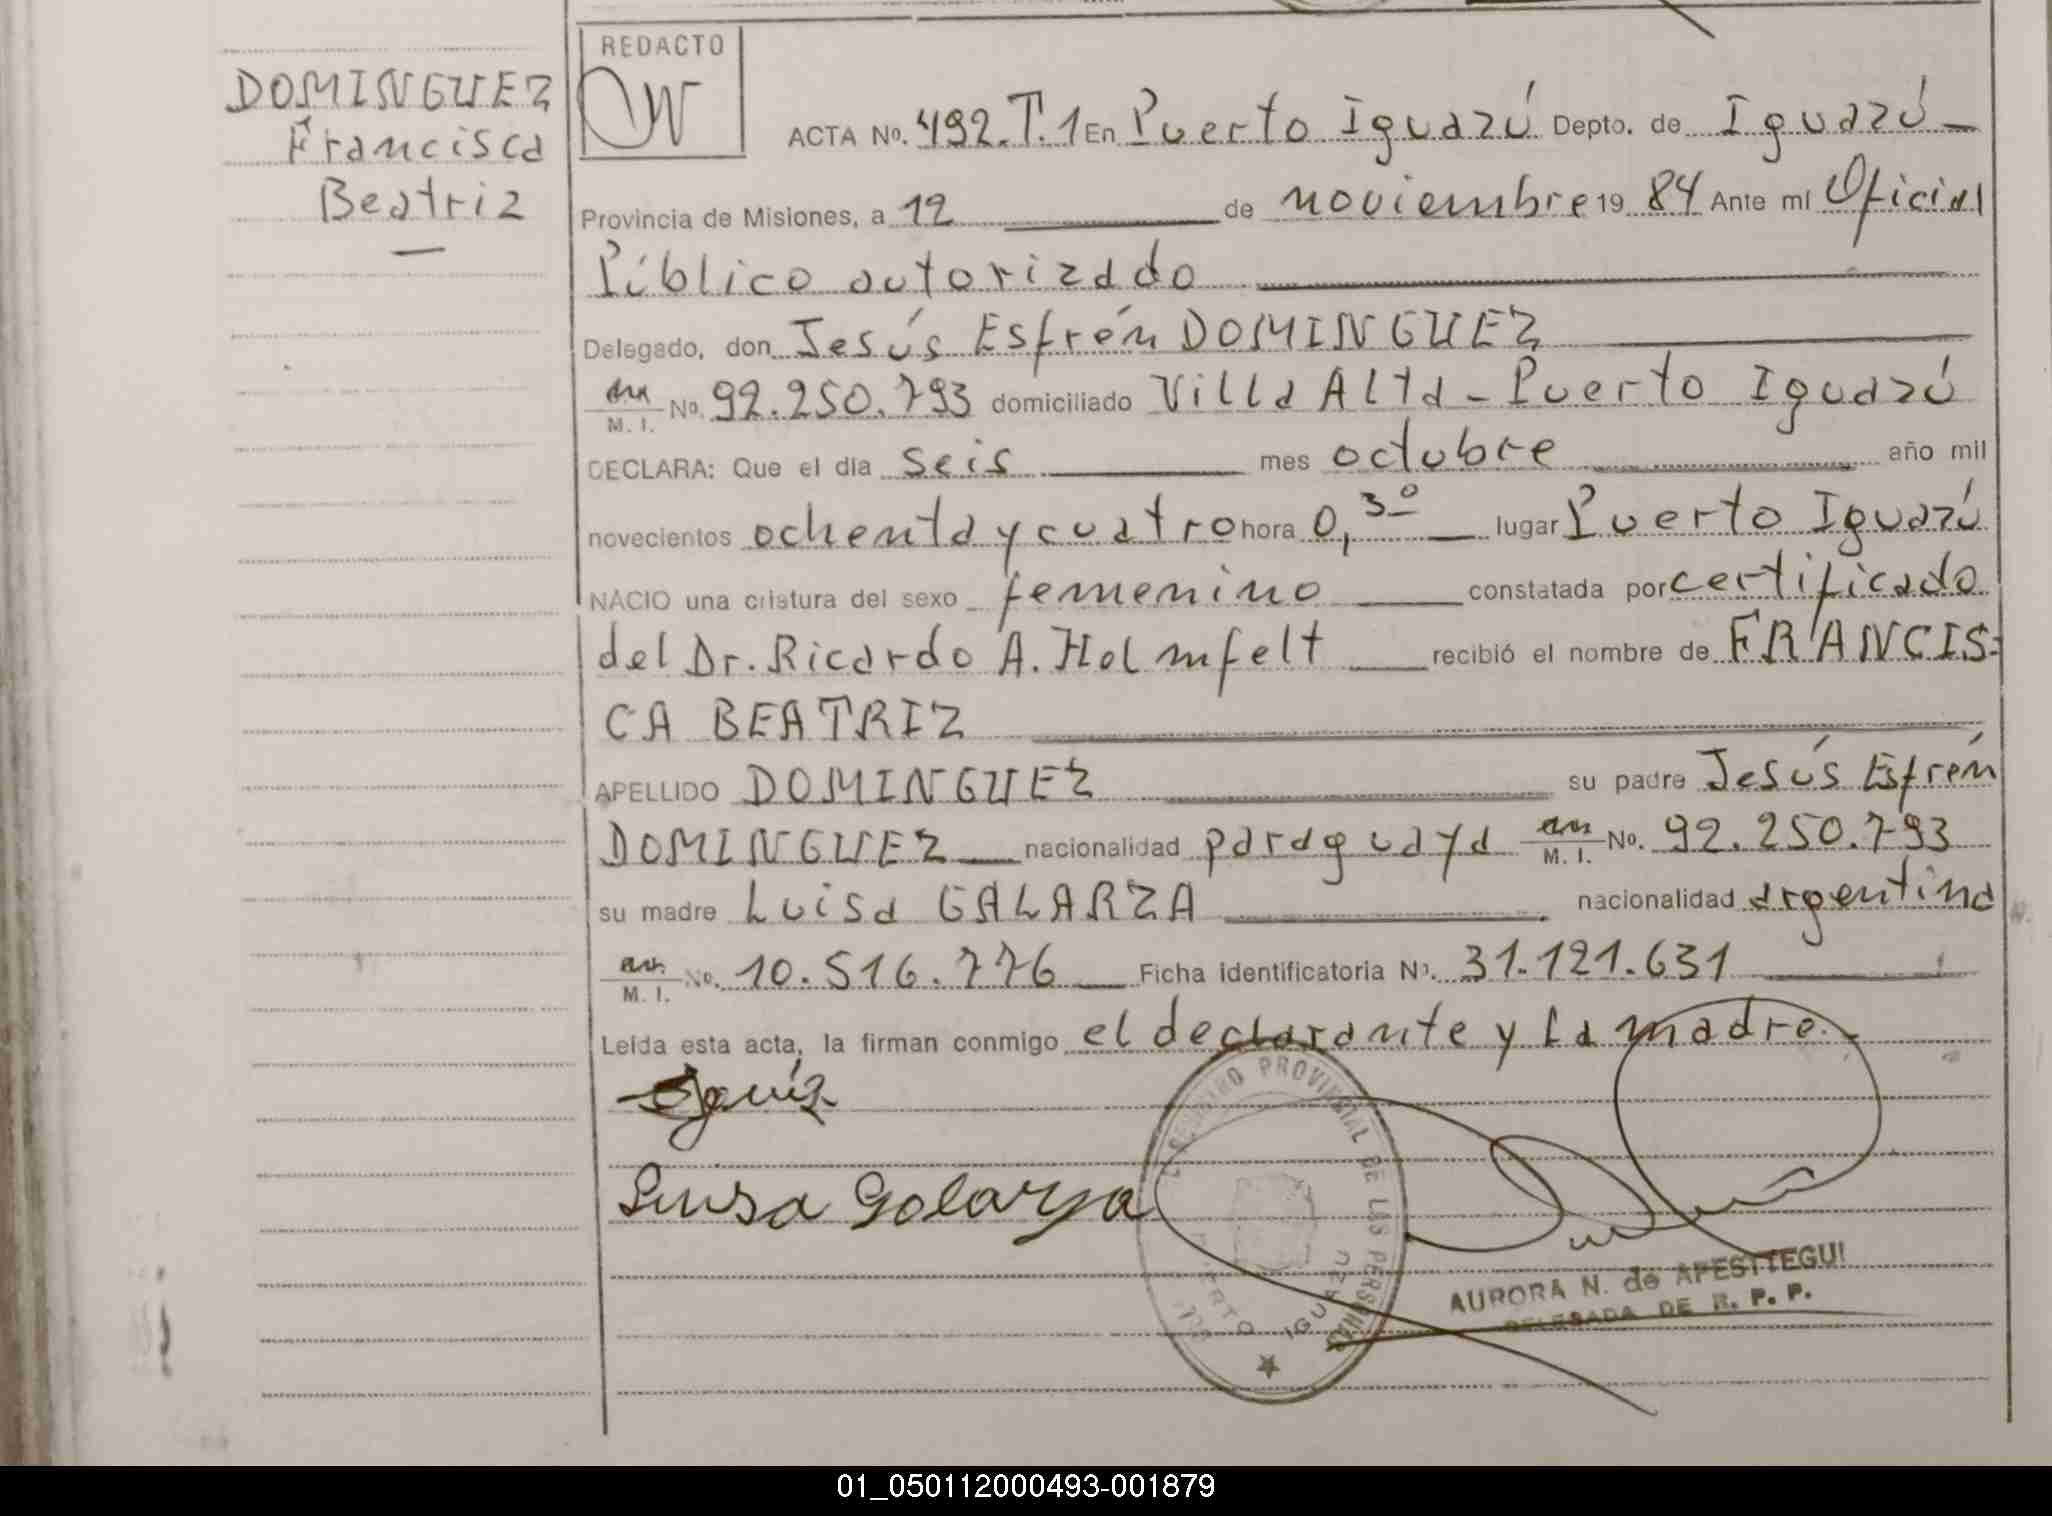 DOMINGUEZ
Francisca
Beatriz
REDACTO
ACTA No. 492.T.1 En Puerto Iguazú Depto. de Iguazú
Provincia de Misiones, a 12 de noviembre 19 84 Ante mi Oficial
Público autorizado
Delegado, don Jesús Esfrén DOMINGUEZ
M. I. No. 92.250.793 domiciliado Villa Alta - Puerto Iguazú
DECLARA: Que el día seis mes octubre año mil
novecientos ochenta y cuatro hora 0,30 lugar Puerto Iguazú
NACIO una criatura del sexo femenino constatada por certificado
del Dr. Ricardo A. Holmfelt recibió el nombre de FRANCIS=
CA BEATRIZ
APELLIDO DOMINGUEZ su padre Jesús Esfrém
DOMINGUEZ nacionalidad paraguaya M. I. No. 92.250.793
su madre Luisa GALARZA nacionalidad argentina
M. I. No. 10.516.776 Ficha identificatoria No. 31.121.631
Leída esta acta, la firman conmigo el declarante y la madre.
Luisa Galarza
REGISTRO PROVINCIAL DE LAS PERSONAS
PUERTO IGUAZU
AURORA N. de APESTEGUI
DELEGADA DE R. P. P.
01_050112000493-001879